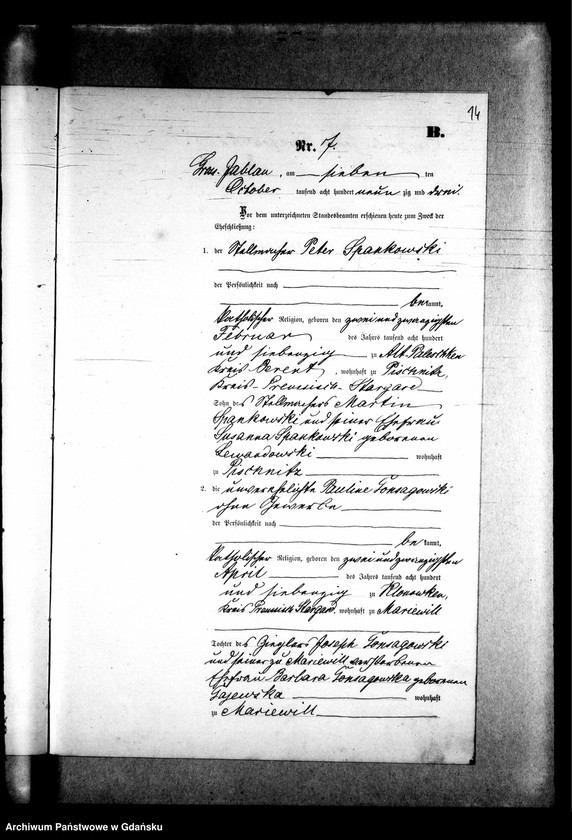 14
B.
Nr. 7.
Gross Jablau, am sieben ten
October tausend acht hundert neun zig und drei.
Vor dem unterzeichneten Standesbeamten erschienen heute zum Zweck der
Eheschließung:
1. der Stellmacher Peter Spankowski
der Persönlichkeit nach
be kannt,
katholischer Religion, geboren den zwei und zwanzigsten
Februar des Jahrs tausend acht hundert
und siebenzig zu Alt Paleschken
Kreis Berent, wohnhaft zu Pischnitz,
Kreis Preussisch-Stargard
Sohn des Stellmachers Martin
Spankowski und seiner Ehefrau
Susanna Spankowski geborenen
Lewandowski wohnhaft
zu Pischnitz
2. die unverehelichte Pauline
ohne Gewerbe
der Persönlichkeit nach
be kannt,
katholischer Religion, geboren den zwei und zwanzigsten
April des Jahrs tausend acht hundert
und siebenzig zu Klonowken,
Kreis Preussisch Stargard, wohnhaft zu Mariewill
Tochter des Zieglers Joseph
und seiner zu Mariewill verstorbenen
Ehefrau Barbara geborenen
Gajewska wohnhaft
zu Mariewill
Archiwum Państwowe w Gdańsku